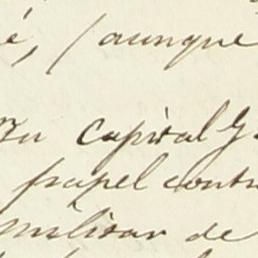 é, (aunque
su capital y
papel contr
militar de